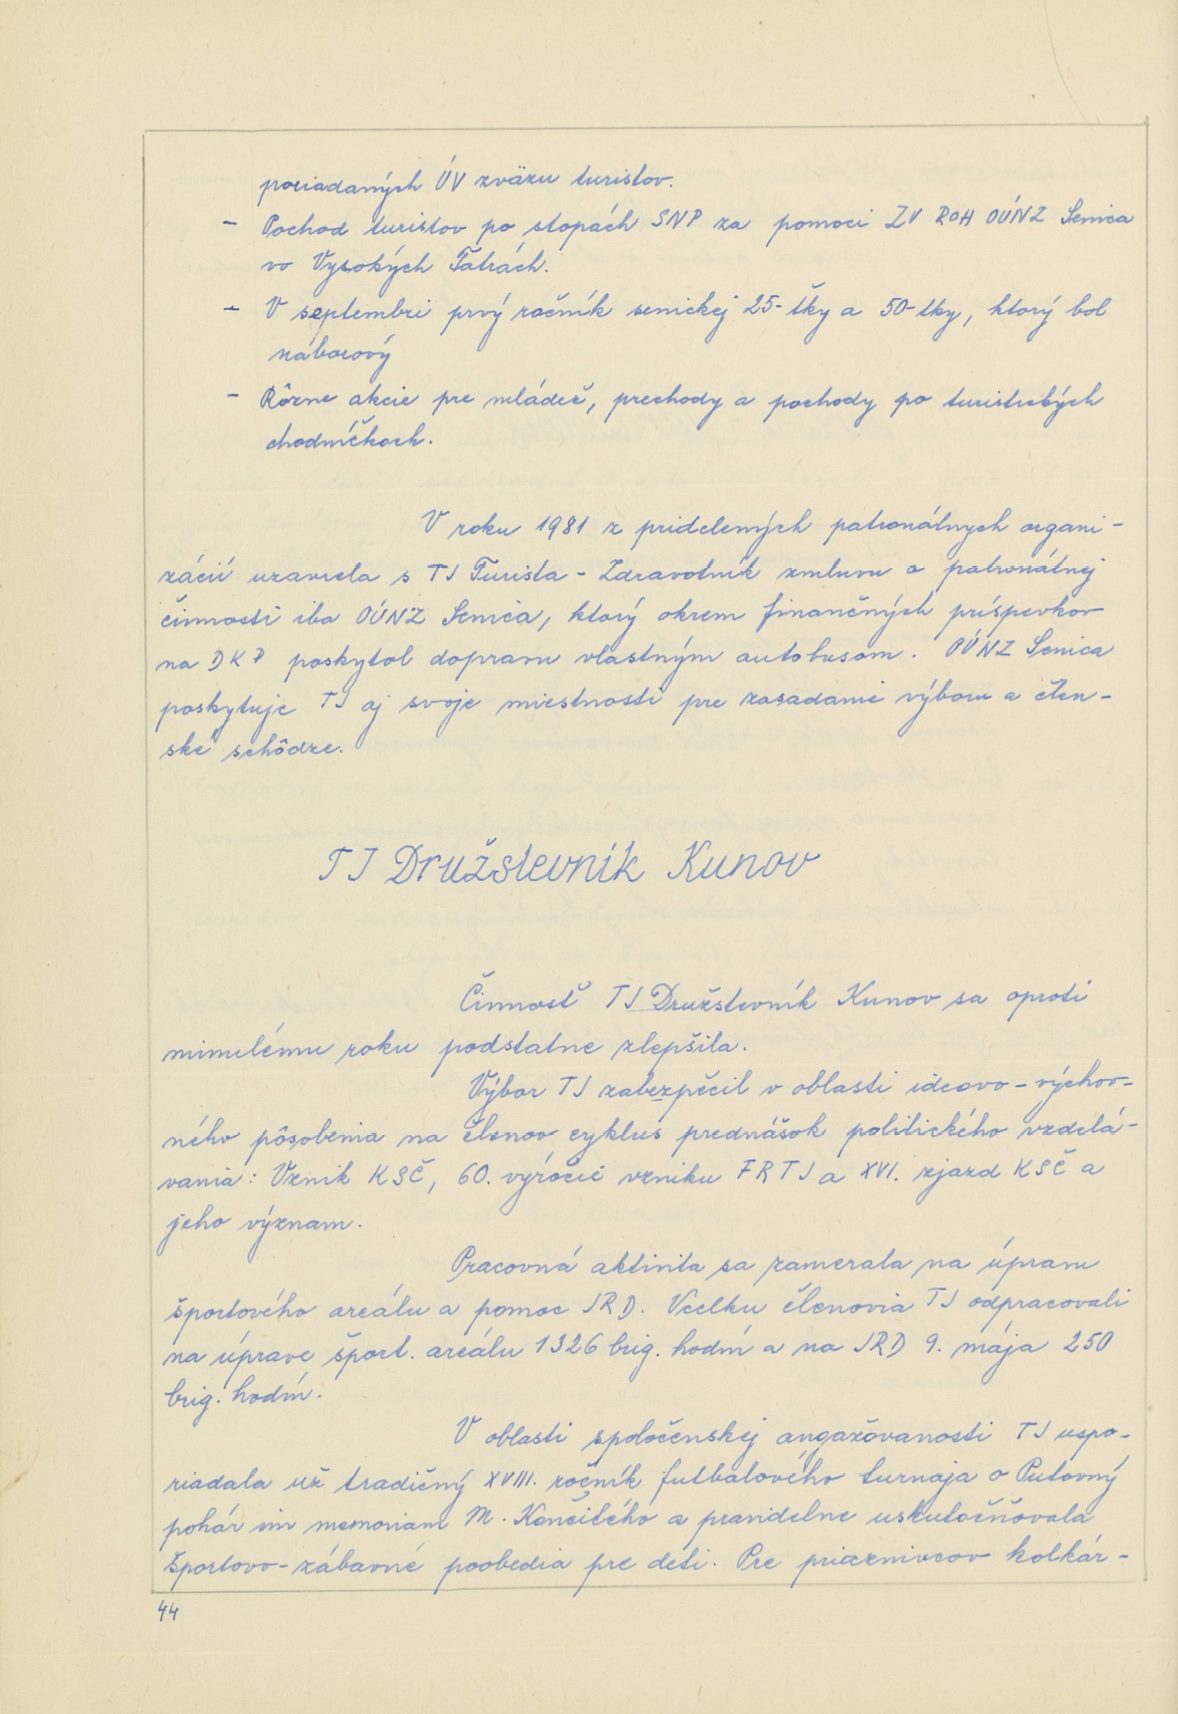 poriadaných ÚV zväzu turistov.
- Pochod turistov po stopách SNP za pomoci ZV ROH OÚNZ Senica
vo Vysokých Tatrách.
- V septembri prvý ročník senickej 25-tky a 50-tky, ktorý bol
náborový
- Rôzne akcie pre mládež, prechody a pochody po turistických
chodníčkoch.
V roku 1981 z pridelených patronátnych organi-
zácií uzavrela s TJ Turista - Zdravotník zmluvu o patronátnej
činnosti iba OÚNZ Senica, ktorý okrem finančných príspevkov
na DKP poskytol dopravu vlastným autobusom. OÚNZ Senica
poskytuje TJ aj svoje miestnosti pre zasadanie výboru a člen-
ské schôdze.
TJ Družstevník Kunov
Činnosť TJ Družstevník Kunov sa oproti
minulému roku podstatne zlepšila.
Výbor TJ zabezpečil v oblasti ideovo-výchov-
ného pôsobenia na členov cyklus prednášok politického vzdelá-
vania: Vznik KSČ, 60. výročie vzniku FRTJ a XVI. zjazd KSČ a
jeho význam.
Pracovná aktivita sa zamerala na úpravu
športového areálu a pomoc JRD. Vcelku členovia TJ odpracovali
na úprave šport. areálu 1326 brig. hodín a na JRD 9. mája 250
brig. hodín.
V oblasti spoločenskej angažovanosti TJ uspo-
riadala už tradičný XVIII. ročník futbalového turnaja o Putovný
pohár in memoriam M. a pravidelne uskutočňovala
športovo-zábavné poobedia pre deti. Pre priaznivcov kolkár-
44